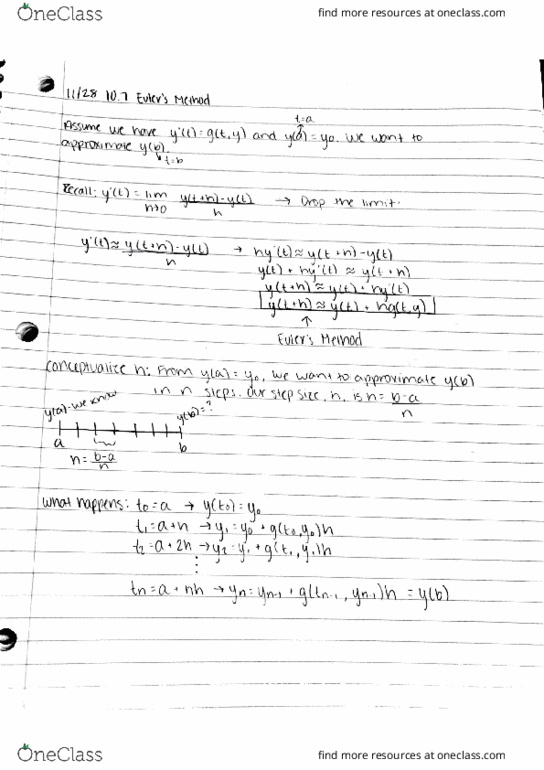 OneClass
find more resources at oneclass.com
11/28 10.7 Euler's Method
t=a
Assume we have y'(t)=g(t,y) and y(a)=y₀. We want to
approximate y(b).
t=b
Recall: y'(t) = lim h→0 y(t+h)-y(t) / h → Drop the limit.
y'(t) ≈ y(t+h)-y(t) / h → hy'(t) ≈ y(t+h)-y(t)
y(t) + hy'(t) ≈ y(t+h)
y(t+h) ≈ y(t) + hy'(t)
y(t+h) ≈ y(t) + hg(t,y)
↑
Euler's Method
conceptualize h: From y(a) = y₀, we want to approximate y(b)
in n steps. Our step size, h, is h = b-a / n
y(a)-we know
y(b)=?
a b
h = b-a / n
What happens: t₀=a → y(t₀)=y₀
t₁=a+h → y₁=y₀+g(t₀,y₀)h
t₂=a+2h → y₂=y₁+g(t₁,y₁)h
⋮
tn=a+nh → yn=yn-1+g(tn-1,yn-1)h = y(b)
OneClass
find more resources at oneclass.com